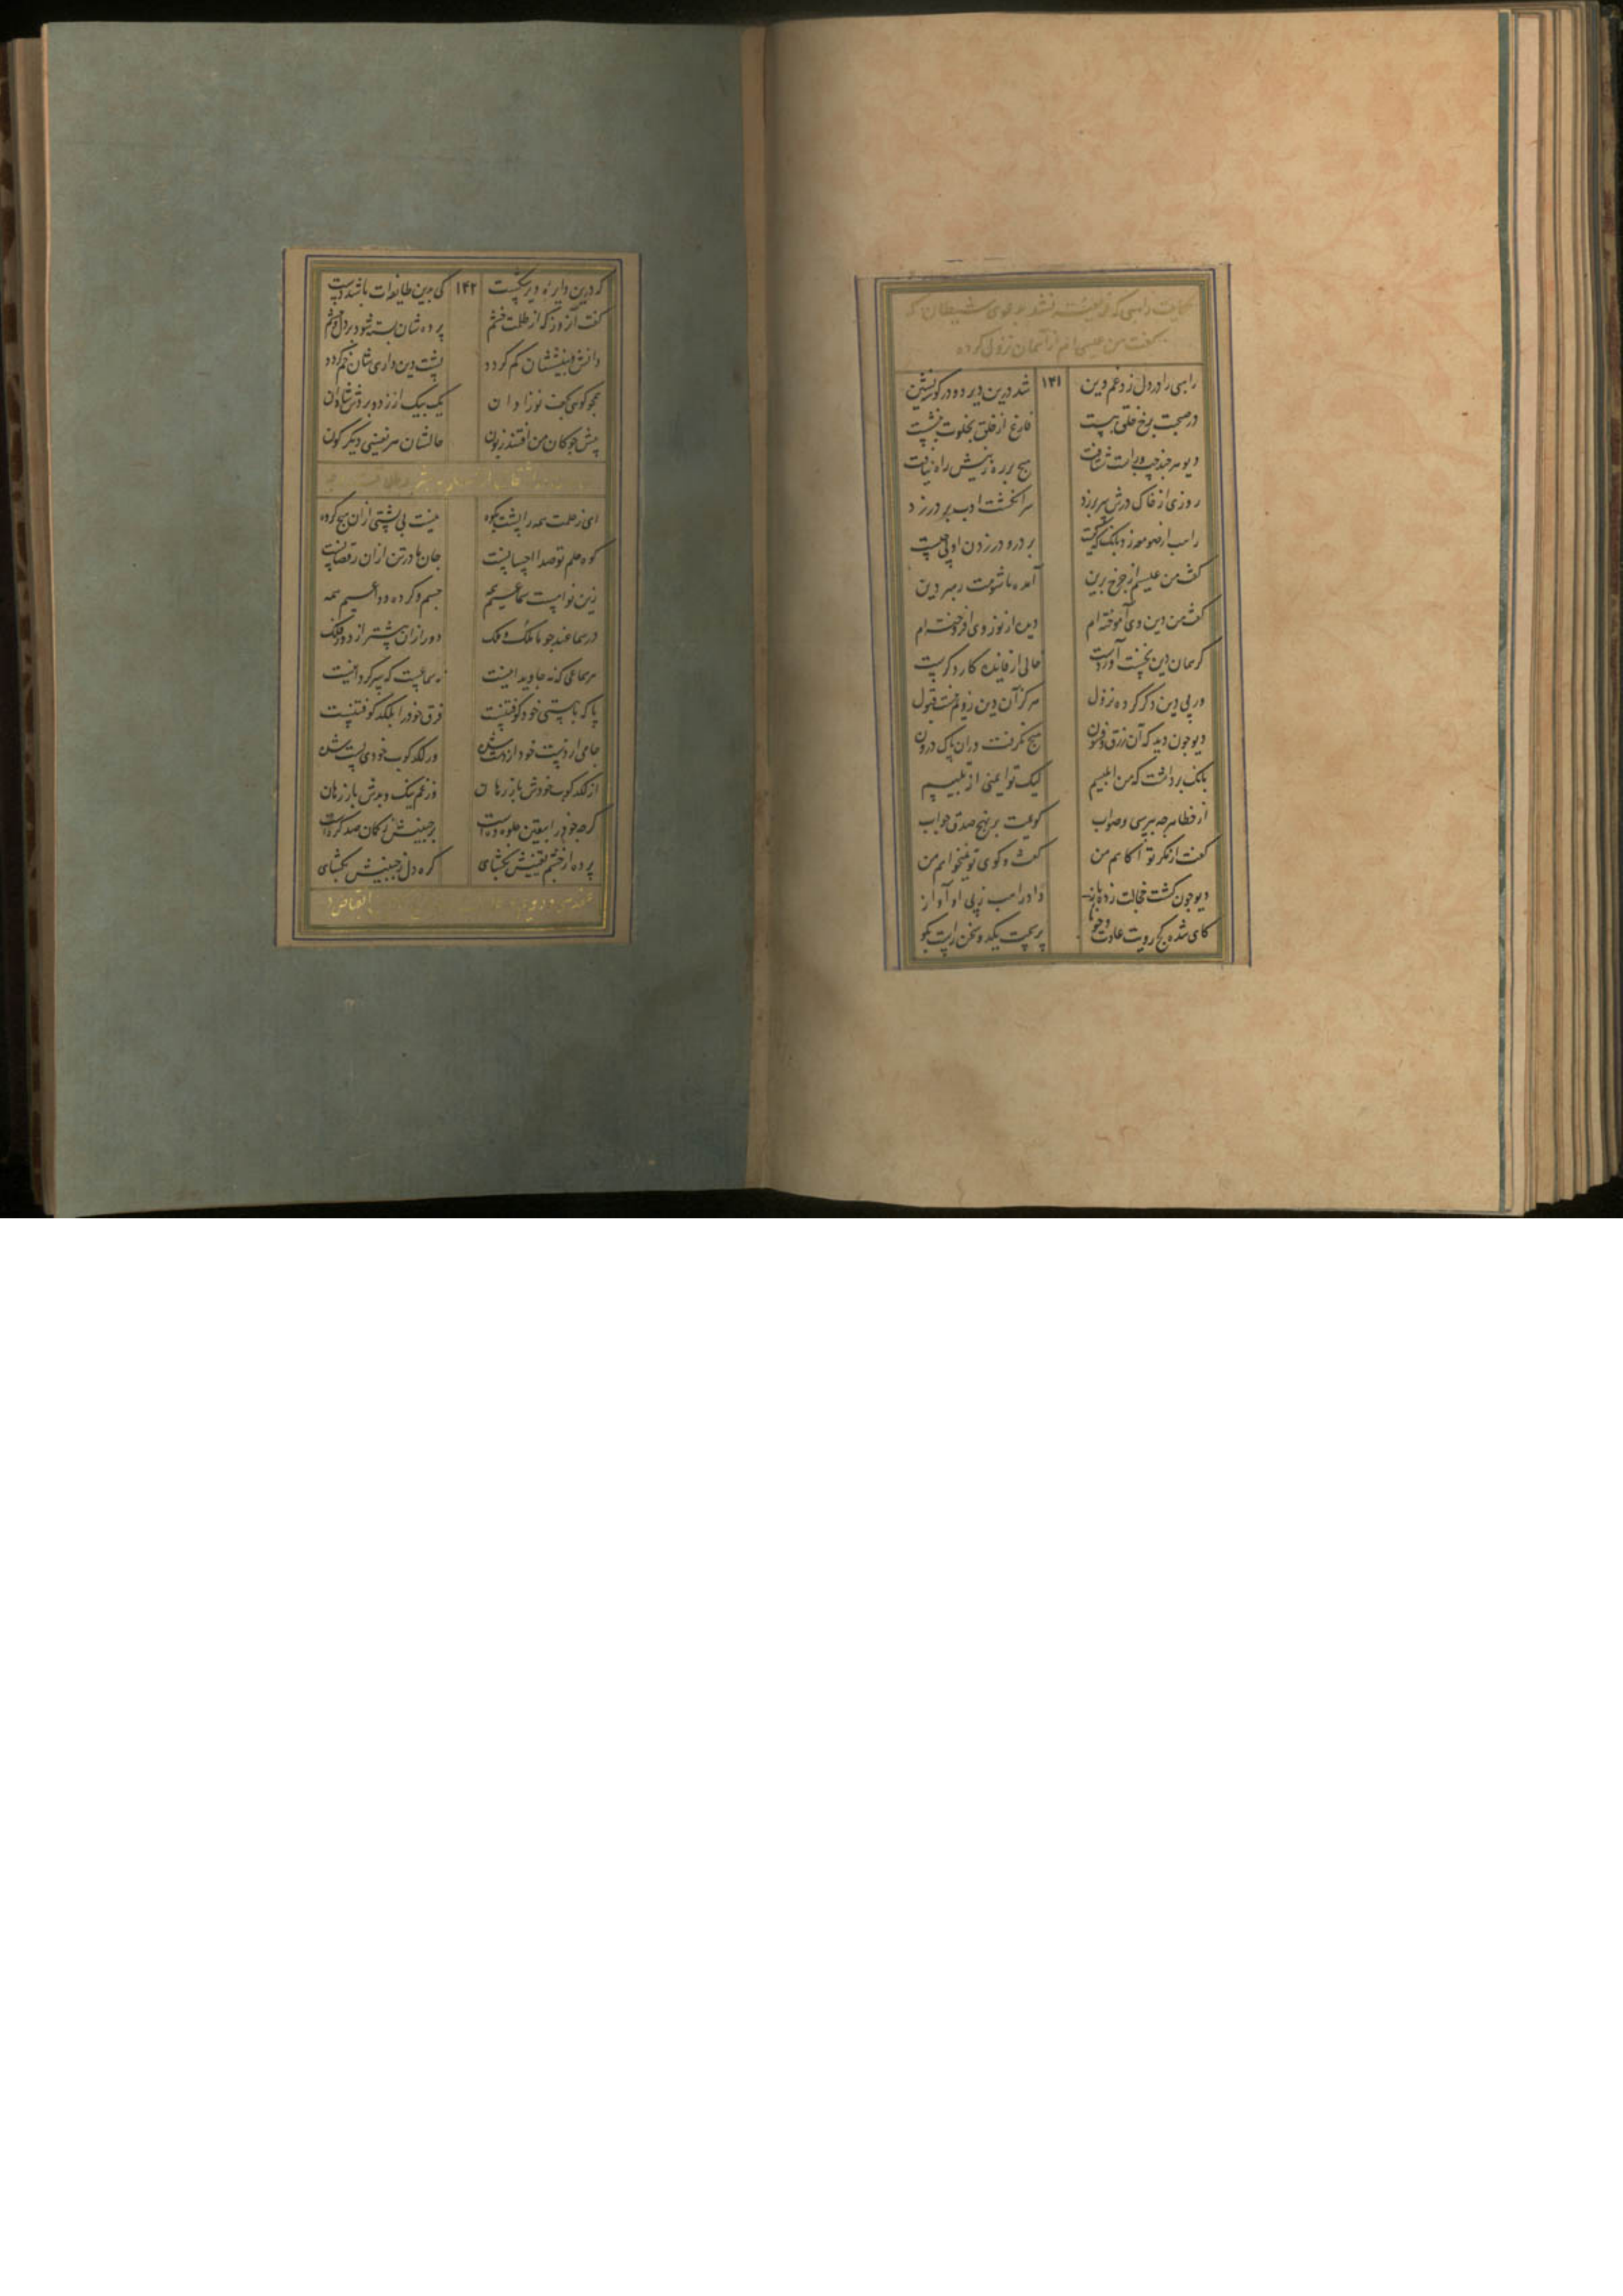 حکایت راهبی که فریفته نشد بدعوی شیطان که
گفت من عیسی ام از آسمان نزول کرده
راهبی را در دل زد غم دین ۱۴۱ شد درین دیر دو در گوشه نشین
در صحبت برخ خلق ببست فارغ از خلق بخلوت بنشست
دیو هرچند چپ و راست شتافت هیچ بر رهزنیش راه نیافت
روزی از خاک درش سر برزد سر انگشت ادب بر در زد
راهب از صومعه زد بانگ که کیست بر در و در زدن او پی چیست
گفت من عیسیم از چرخ برین آمده تا شومت رهبر دین
گفت من دین وی آموخته ام دین از نور وی افروخته ام
گر همان دین نخست آوردست خالی از فایده کار دگرست
ور پی دین دگر کرده نزول هرگز آن دین ز ویم نیست قبول
دیو چون دید که آن زرق و فسون هیچ نگرفت در آن پاک درون
بانگ برداشت که من ابلیسم لیک تو ایمنی از تلبیسم
از خطا هرچه بپرسی و صواب گویمت بر نهج صدق جواب
گفت از مکر تو آگاهم من گفت و گوی تو نمیخواهم من
دیو چون گشت خجالت زده باز داد راهب ز پی او آواز
کای شده کج رویت عادت و خو پرسمت یکدو سخن راست بگو
که درین دایره دیر شکست ۱۴۲ کی برین طایفه ات باشد دست
گفت آن روز که از ظلمت خشم پرده شان بسته شود بر دل و چشم
دانش و بینششان کم گردد پشت دین داری شان خم گردد
همچو گوی کف نوزادان یک بیک از زدو برد
پیش چوگان من افتند زبون حالشان هر نفسی دیگر گون
ای ز حلمت همه را پشت بکوه نیست بی پشتی ازان هیچ گروه
کوه حلم تو صدا احسانست جان ها در تن ازان رقصانست
زین نوا مست سماعیم همه جسم و کرده وداعیم همه
در سماعند چو ما ملک و ملک دور ازان پیشتر از دور فلک
هر سماعی که نه جاوید انیست نه سماعست که سرگردانیست
پا که با پستی خود کوفتنیست فرق خود را بلکد کوفتنیست
جامی از دست خود از دست شدش ور لکدکوب خودی پست شدش
از لکدکوب خودش باز رهان وز غم نیک و بدش باز رهان
گرچه خود را بیقین جلوه ده است بر جبینش ز گمان صد گره است
پرده از چشم یقینش بگشای گره دل ز جبینش بگشای